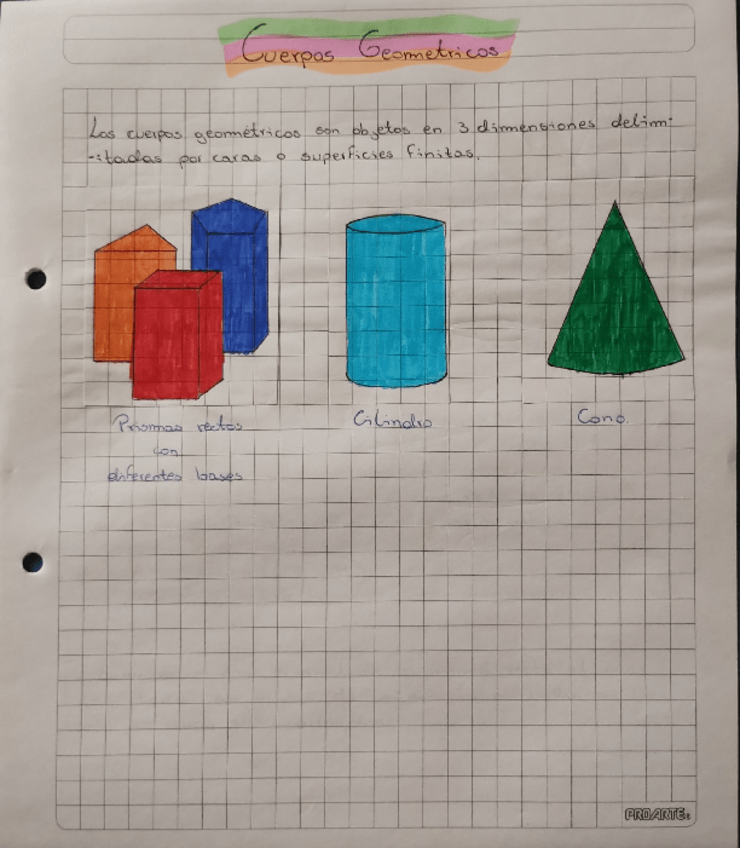 Cuerpos Geometricos
Los cuerpos geométricos son objetos en 3 dimensiones delimi
-itadas por caras o superficies finitas.
Prismas rectos
con
diferentes bases
Cilindro
Cono.
PROARTE